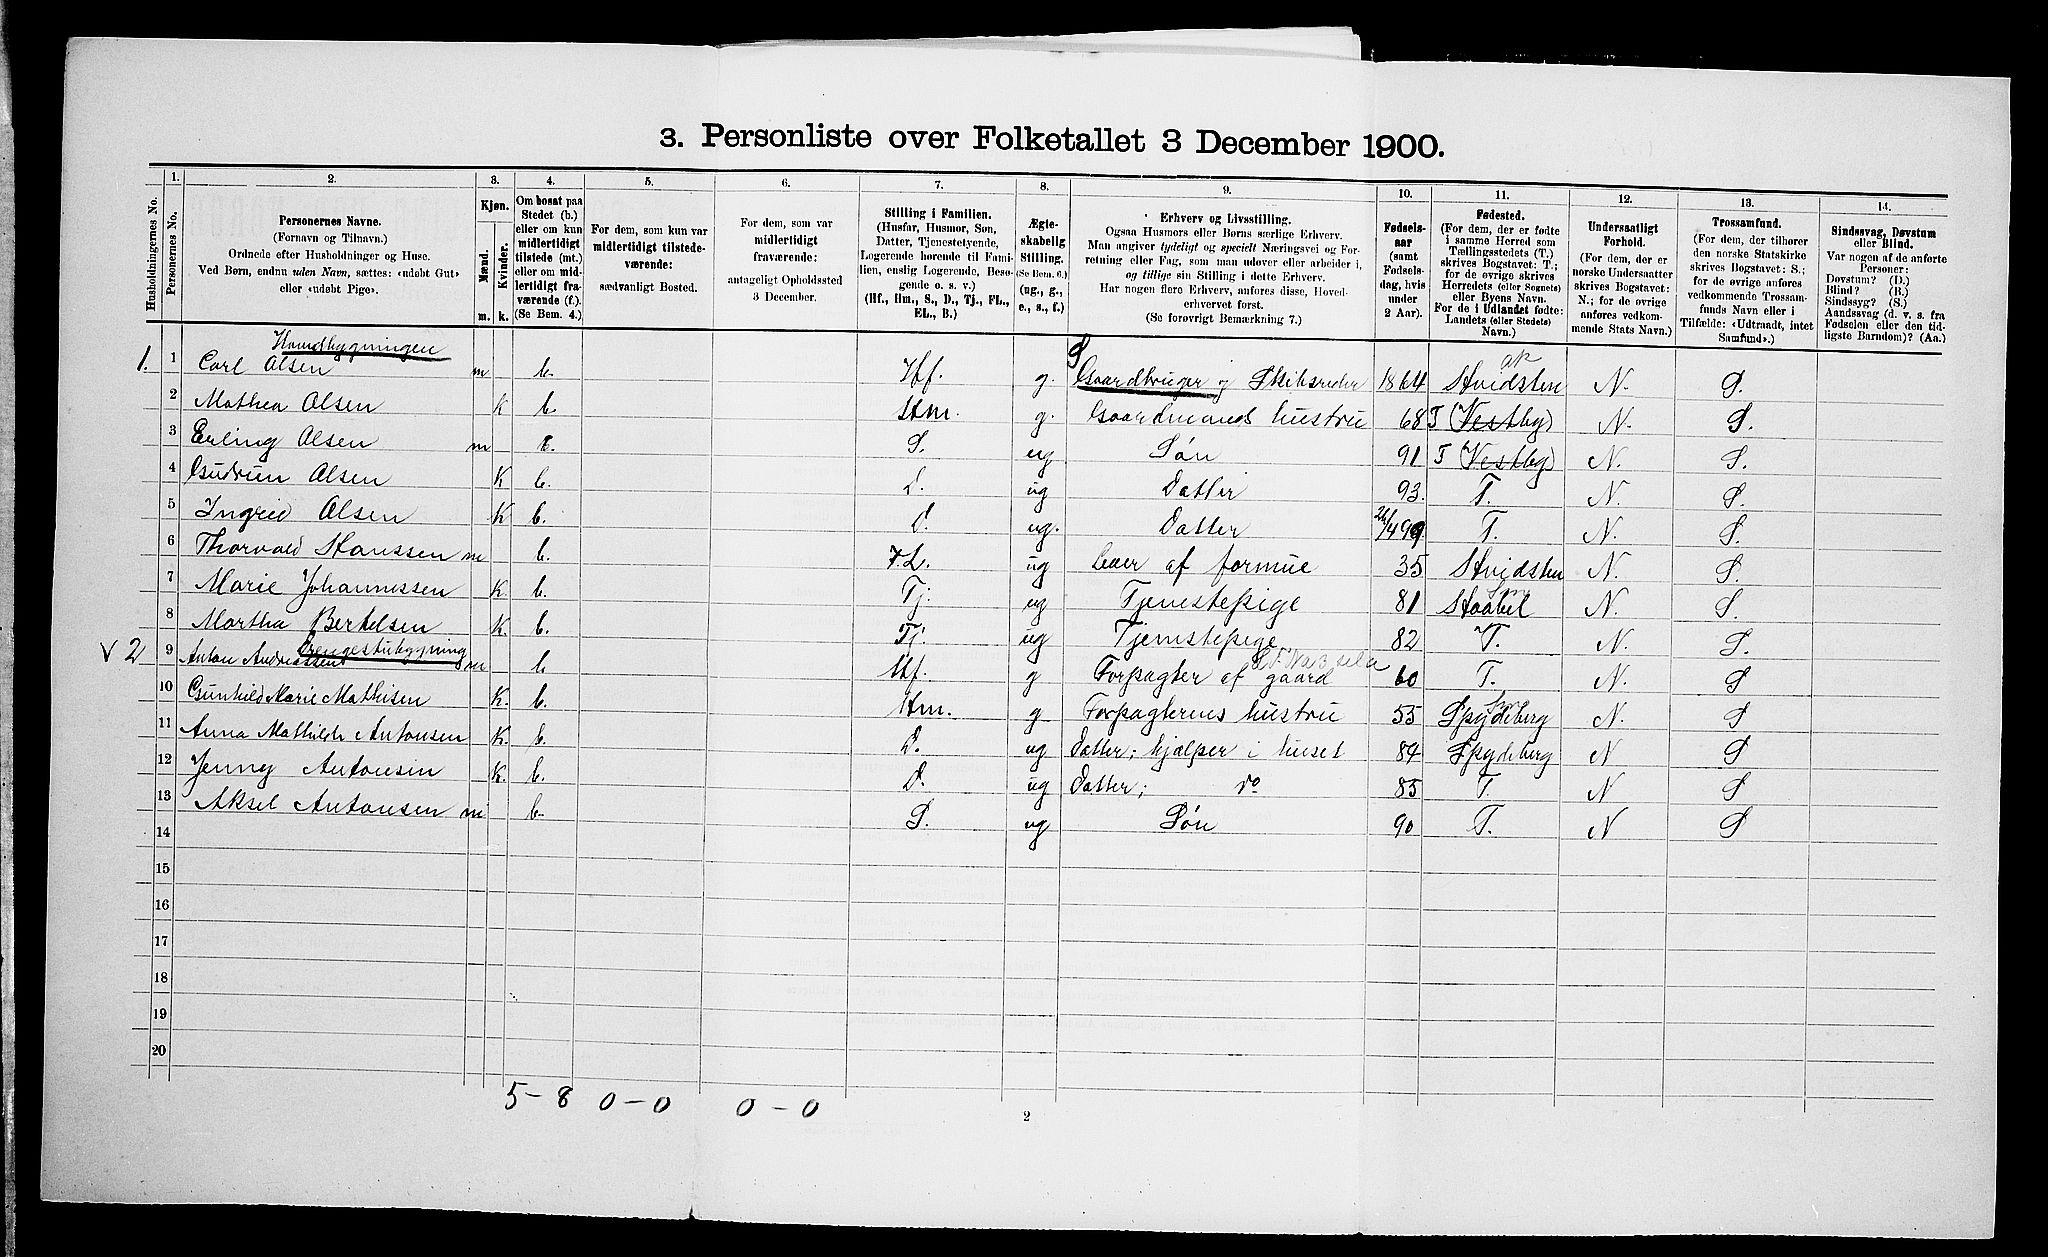 3. Personliste over Folketallet 3 December 1900.
Husholdningernes No.
1.
Personernes No.
2.
Personernes Navne.
(Fornavn og Tilnavn.)
Ordnede efter Husholdninger og Huse.
Ved Børn, endnu uden Navn, sættes: «udøbt Gut»
eller «udøbt Pige».
3.
Kjøn.
Mænd.
Kvinder.
m. k.
4.
Om bosat paa
Stedet (b.)
eller om kun
midlertidigt
tilstede (mt.)
eller om mid-
lertidigt fra-
værende (f.).
(Se Bem. 4.)
5.
For dem, som kun var
midlertidigt tilstede-
værende:
sædvanligt Bosted.
6.
For dem, som var
midlertidigt
fraværende:
antageligt Opholdssted
3 December.
7.
Stilling i Familien.
(Husfar, Husmor, Søn,
Datter, Tjenestetyende,
Logerende hørende til Fami-
lien, enslig Logerende, Besø-
gende o. s. v.)
(Hf., Hm., S., D., Tj., FL.,
EL., B.)
8.
Ægte-
skabelig
Stilling.
(Se Bem. 6.)
(ug., g.,
e., s., f.)
9.
Erhverv og Livsstilling.
Ogsaa Husmors eller Børns særlige Erhverv.
Man angiver tydeligt og specielt Næringsvei og For-
retning eller Fag, som man udøver eller arbeider i,
og tillige sin Stilling i dette Erhverv.
Har nogen flere Erhverv, anføres disse, Hoved-
erhvervet først.
(Se forøvrigt Bemærkning 7.)
10.
Fødsels-
aar
(samt
Fødsels-
dag, hvis
under
2 Aar).
11.
Fødested.
(For dem, der er fødte
i samme Herred som
Tællingsstedets (T.)
skrives Bogstavet: T.;
for de øvrige skrives
Herredets (eller Sognets)
eller Byens Navn.
For de i Udlandet fødte:
Landets (eller Stedets)
Navn.)
12.
Undersaatligt
Forhold.
(For dem, der er
norske Undersaatter
skrives Bogstavet:
N.; for de øvrige
anføres vedkom-
mende Stats Navn.)
13.
Trossamfund.
(For dem, der tilhører
den norske Statskirke
skrives Bogstavet: S.;
for de øvrige anføres
vedkommende Trossam-
funds Navn eller i
Tilfælde: «Udtraadt, intet
Samfund».)
14.
Sindssvag, Døvstum
eller Blind.
Var nogen af de anførte
Personer:
Døvstum? (D.)
Blind? (B.)
Sindssyg? (S.)
Aandssvag (d. v. s. fra
Fødselen eller den tid-
ligste Barndom)? (Aa.)
Hovedbygningen
1. 1 Carl Olsen m b. Hf. g. Gaardbruger og Skibsreder 1864 Hvidsten N. S.
2 Mathea Olsen k b. Hm. g. Gaardmands hustru 68 T (Vestby) N. S.
3 Erling Olsen m b. S. ug Søn 91 T (Vestby) N. S.
4 Gudrun Olsen K b. D. ug Datter 93. T. N. S.
5 Ingrid Olsen K b. D. ug. Datter 26/4 99 T. N. S.
6 Thorvald Hanssen m b. F.L. ug Lever af formue 35 Hvidsten N. S.
7 Marie Johannessen K. b. Tj. ug Tjenestepige 81 Haabøl N. S.
8 Martha Bertelsen K. b. Tj. ug Tjenestepige 82 T. N. S.
Drengestubygning
v 2 9 Anton Andreassen m b Hf. g Forpagter af gaard 60 T. N. S
10 Gunhild Marie Mathisen K. b. Hm. g Forpagterens hustru 55 Spydeberg N. S
11 Anna Mathilde Antonsen K. b. D. ug Datter; hjælper i huset 84 Spydeberg N S
12 Jenny Antonsen K. b. D. ug Datter; do 85 T. N S
13 Aksel Antonsen m b. S. ug Søn 90 T. N S
14
15
16
17
18
19
20
5-8 0-0 0-0
2